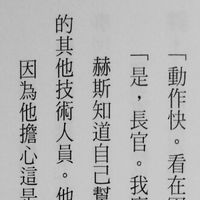 「動作快。看在
「是，長官。我
赫斯知道自己幫
的其他技術人員。他
因為他擔心這是